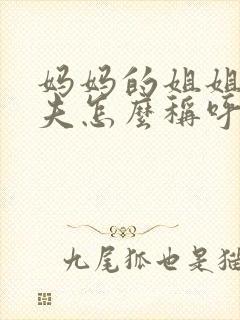 妈妈的姐姐
夫怎麽稱呼
九尾狐也是猫